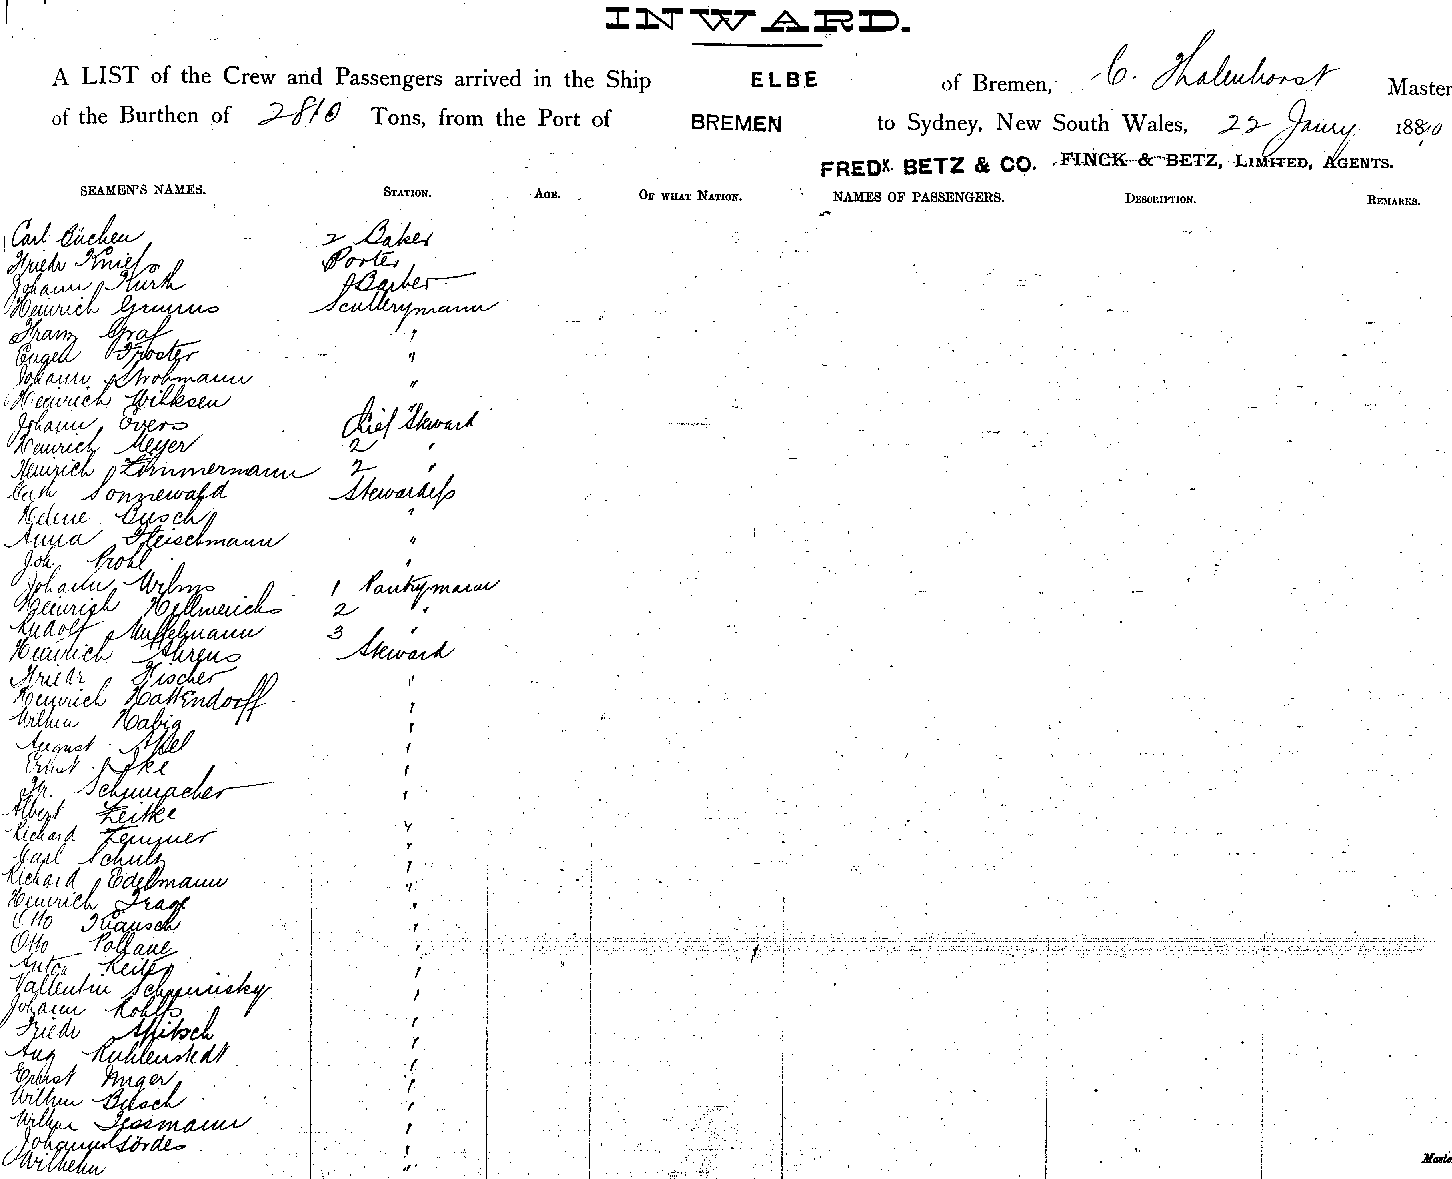 INWARD.
A LIST of the Crew and Passengers arrived in the Ship ELBE of Bremen, C. Thalenhorst Master
of the Burthen of 2810 Tons, from the Port of BREMEN to Sydney, New South Wales, 22 Jany 1890
FREDK. BETZ & CO. FINCK & BETZ, LIMITED, AGENTS.
SEAMEN'S NAMES. STATION. AGE. OF WHAT NATION. NAMES OF PASSENGERS. DESCRIPTION. REMARKS.
Carl Büchen 2 Baker
Friedr Knief Porter
Johann Kurth Barber
Heinrich Scullerymann
Franz Graf "
Eugen "
Johann Strohmann "
Heinrich Wilksen "
Johann Evers Chief Steward
Heinrich Meyer 2 "
Heinrich Zimmermann 2 "
Sonnewald Stewardess
Helene Busch "
Anna Fleischmann "
Joh Prohl "
Johann Wilms 1 Pantrymann
Heinrich Hellmerichs 2 "
Rudolf Musselmann 3 "
Heinrich Ahrens Steward
Friedr Fischer "
Heinrich Hattendorff "
Wilhem Habig "
August Abel "
Ernst "
Fr. Schumacher "
Albert Zeitke "
Richard "
Carl Schulz "
Richard Edelmann "
Heinrich Trage "
Otto Krausch "
Otto "
Anton Reiter "
Vallentin "
Johann Rohlfs "
Friedr "
Aug Kuhlenstedt "
Ernst Unger "
Wilhem Busch "
Wilhem Tessmann "
Johann Cordes "
Wilhelm "